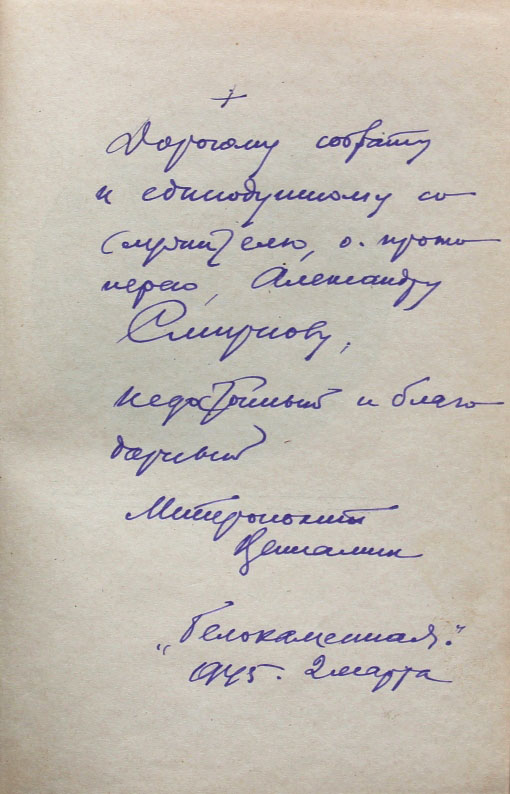 +
Дорогому собрату
и единодушному со
служителю, о. прото
иерею, Александру
Смирнову,
недостойный и благо
дарный
Митрополит
Вениамин
„Белокаменная."
945. 2 марта